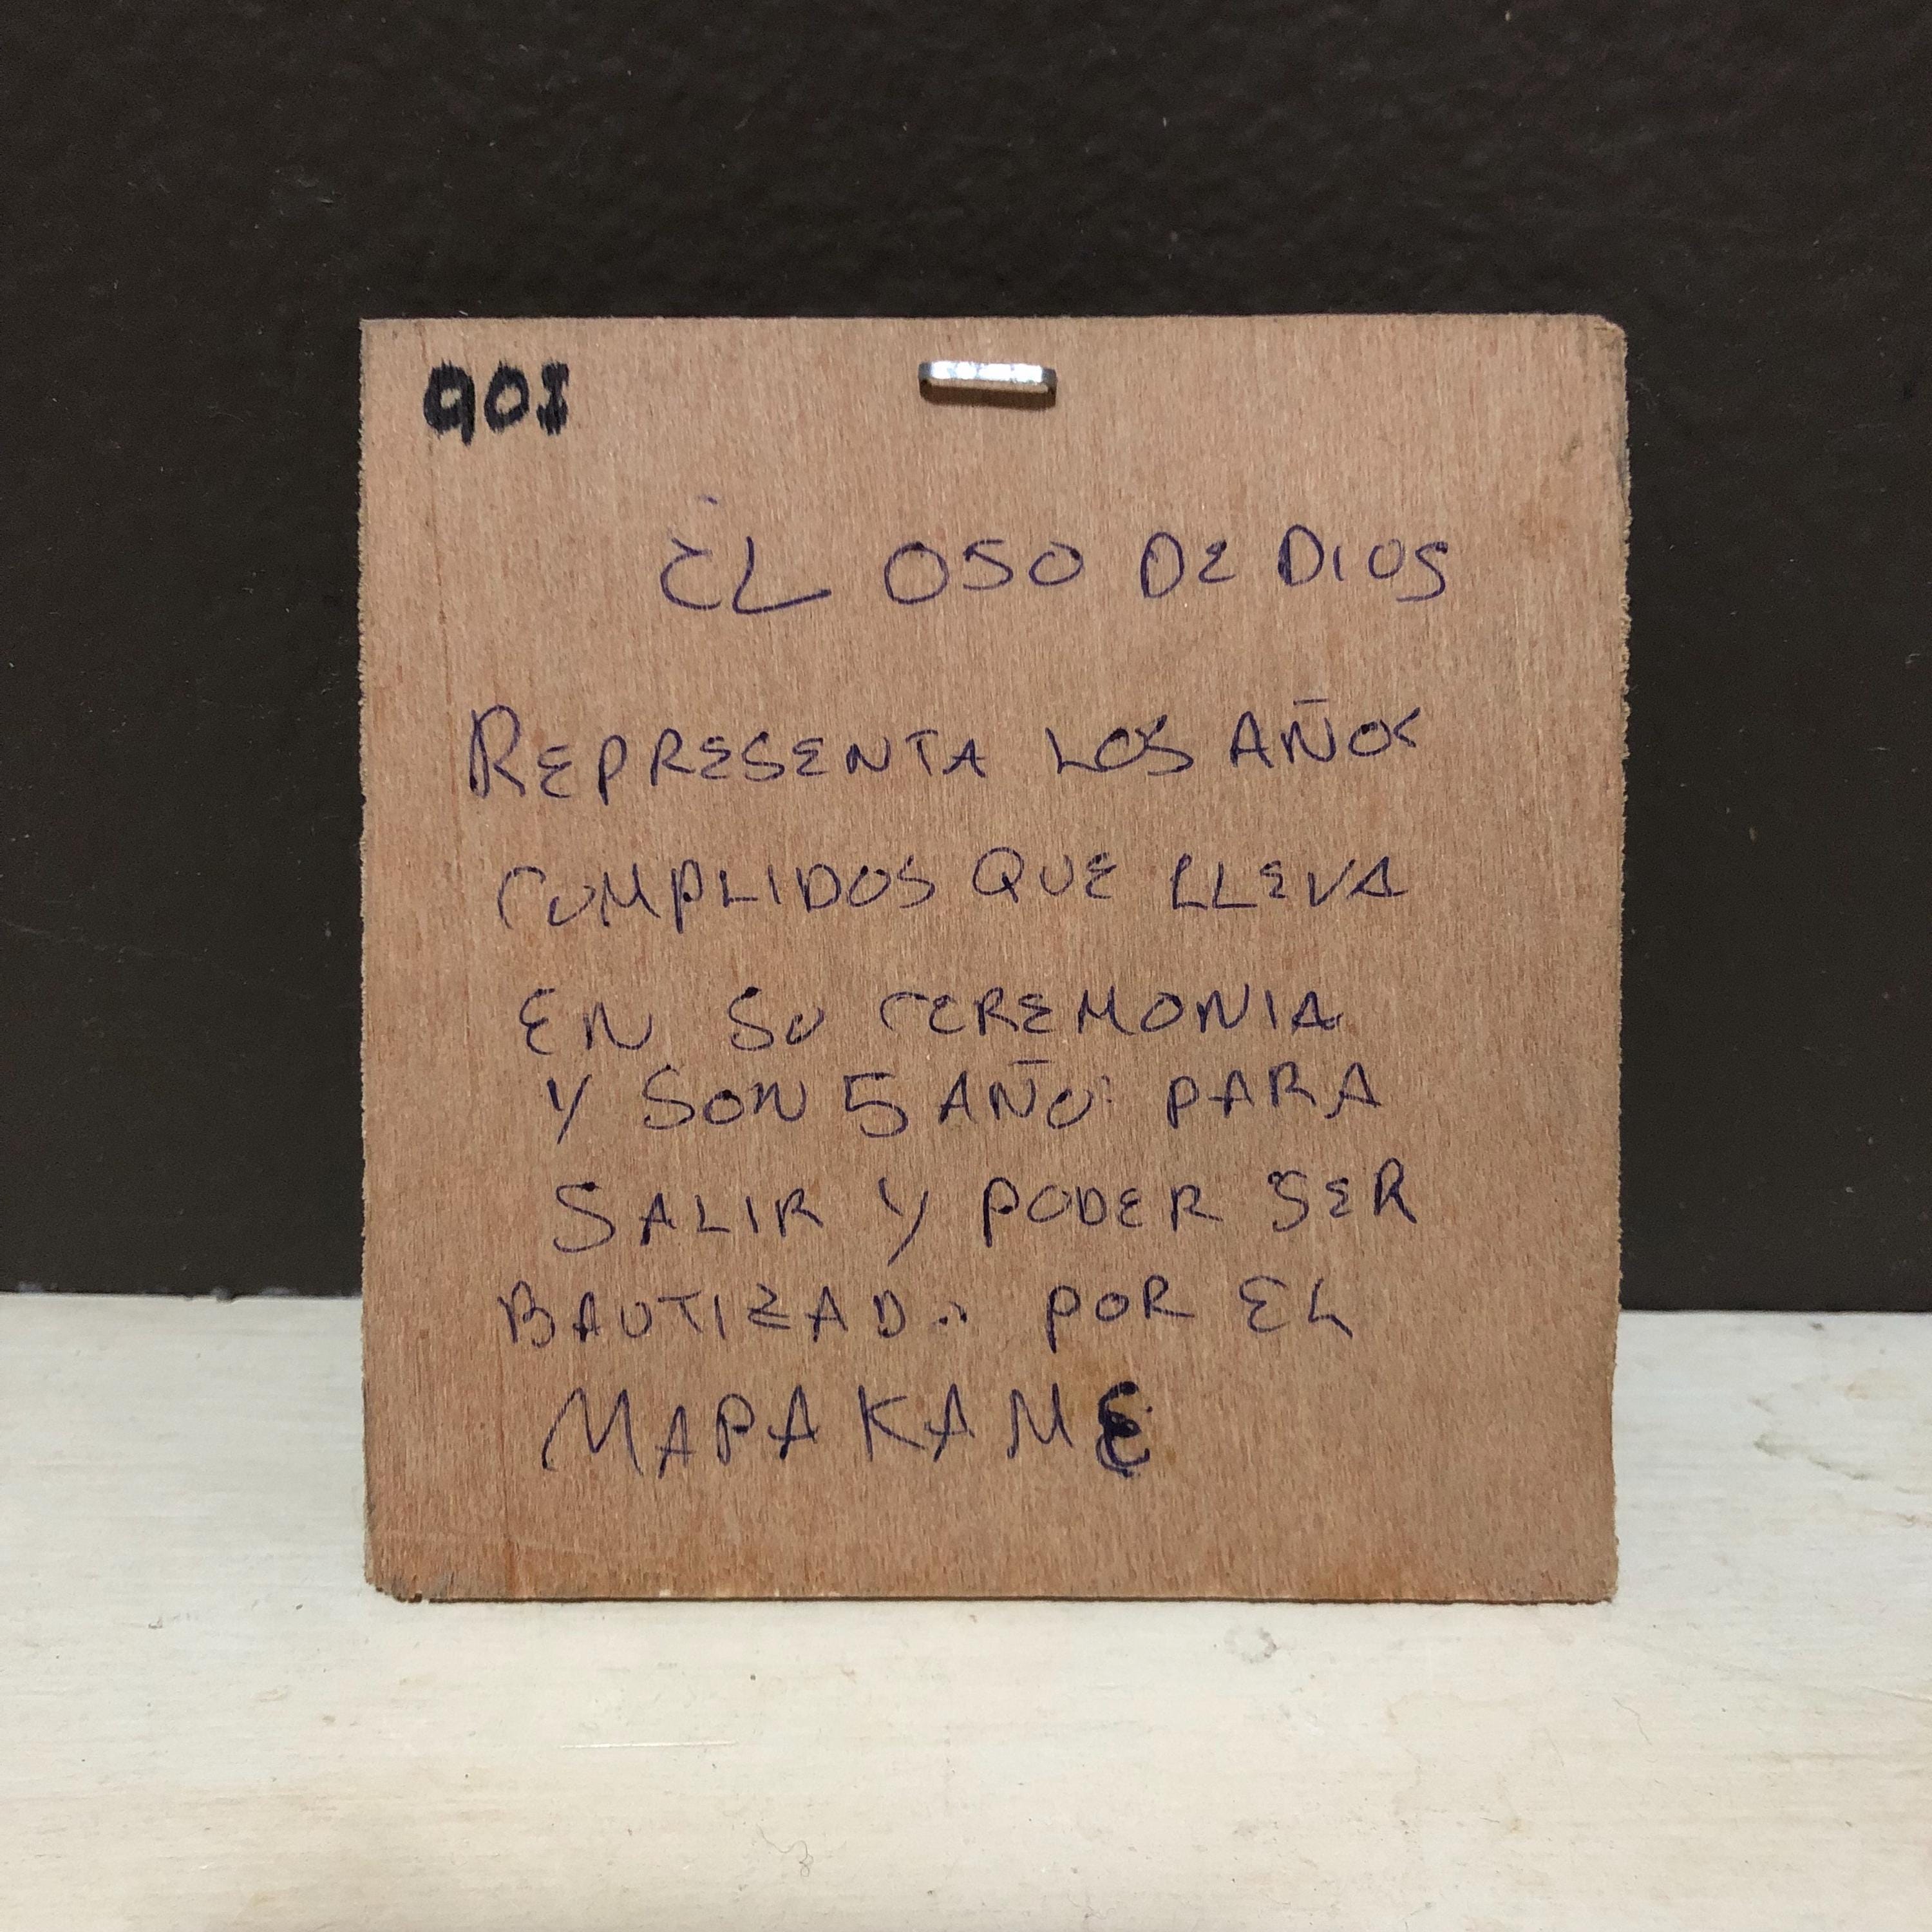 908
EL OSO DE DIOS
REPRESENTA LOS AÑOS
CUMPLIDOS QUE LLEVA
EN SU CEREMONIA
Y SON 5 AÑO: PARA
SALIR Y PODER SER
BAUTIZAD.. POR EL
MARAKAME